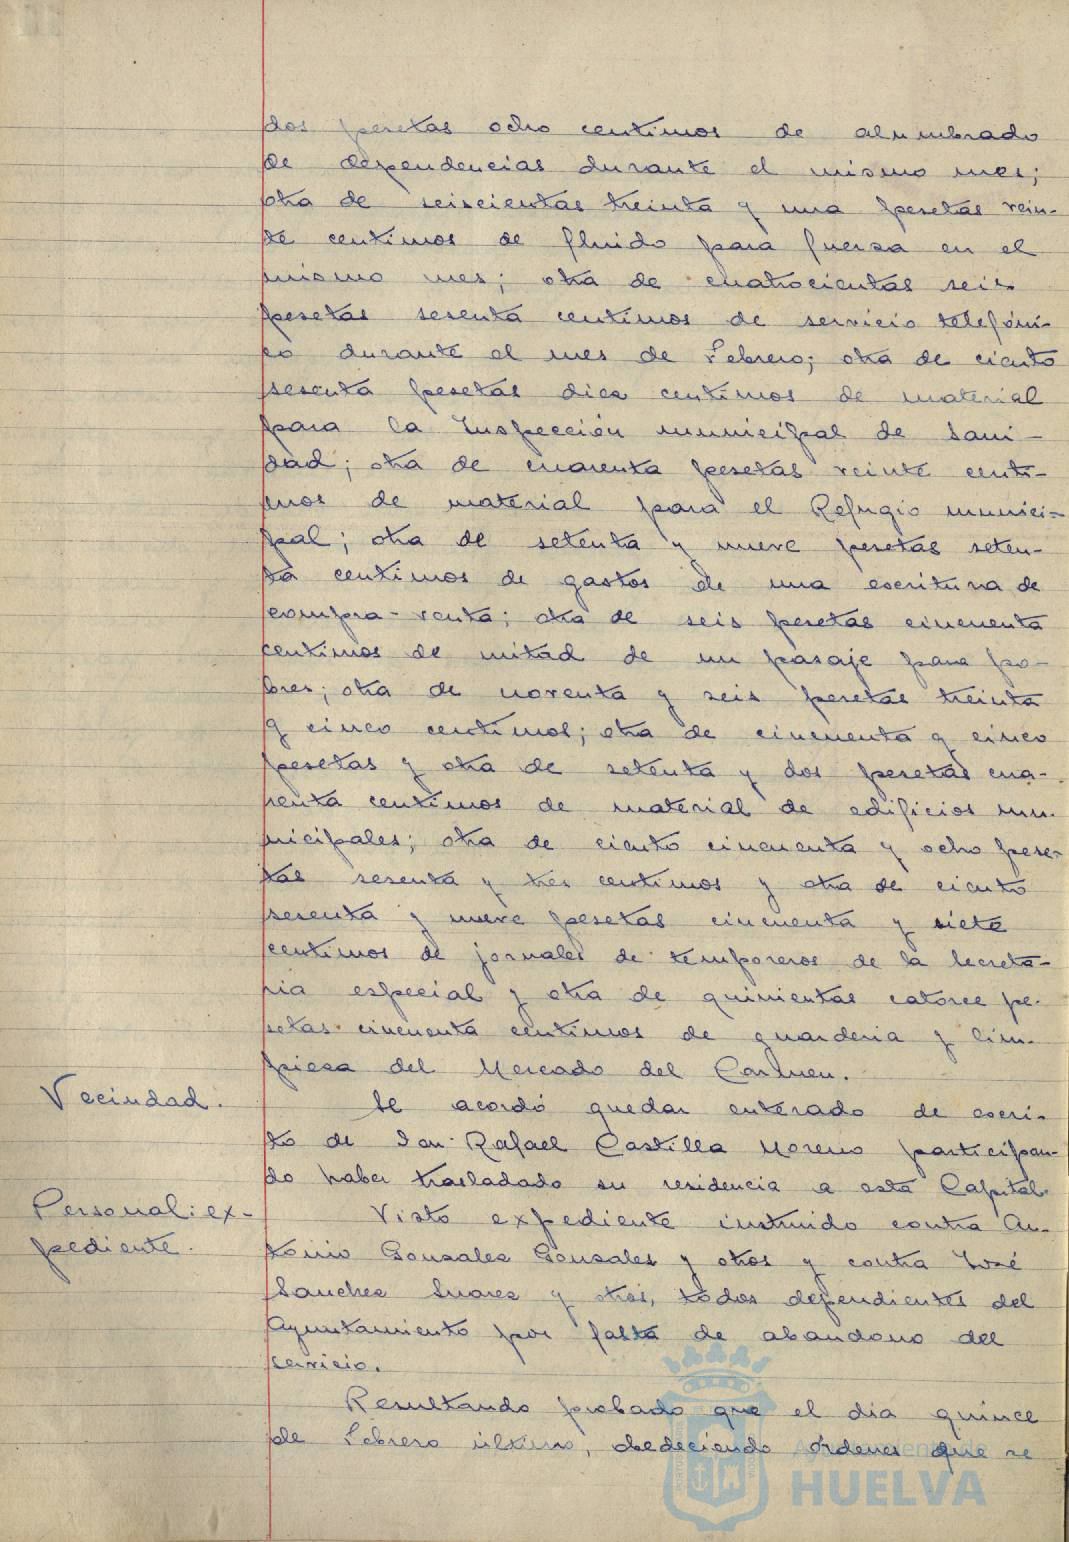 dos pesetas ocho centimos de alumbrado
de dependencias durante el mismo mes;
otra de seiscientas treinta y una pesetas vein-
te centimos de fluido para fuerza en el
mismo mes; otra de cuatrocientas seis
pesetas sesenta centimos de servicio telefóni-
co durante el mes de Febrero; otra de ciento
sesenta pesetas diez centimos de material
para la Inspección municipal de Sani-
dad; otra de cuarenta pesetas veinte centi-
mos de material para el Refugio munici-
pal; otra de setenta y nueve pesetas seten-
ta centimos de gastos de una escritura de
compra-venta; otra de seis pesetas cincuenta
centimos de mitad de un pasaje para po-
bres; otra de noventa y seis pesetas treinta
y cinco centimos; otra de cincuenta y cinco
pesetas y otra de setenta y dos pesetas cua-
renta centimos de material de edificios mu-
nicipales; otra de ciento cincuenta y ocho pese-
tas sesenta y tres centimos y otra de ciento
sesenta y nueve pesetas cincuenta y siete
centimos de jornales de temporeros de la Secreta-
ria especial y otra de quinientas catorce pe-
setas cincuenta centimos de guarderia y lim-
pieza del Mercado del Carmen.
Vecindad.
Se acordó quedar enterado de escri-
to de Don Rafael Castilla Moreno participan-
do haber trasladado su residencia a esta Capital.
Personal: ex-
pediente.
Visto expediente instruido contra An-
tonio Gonzalez Gonzales y otros y contra José
Sanchez Suarez y otros, todos dependientes del
Ayuntamiento por falta de abandono del
servicio.
Resultando probado que el dia quince
de Febrero último, obedeciendo ordenes que se
Ayuntamiento de
HUELVA